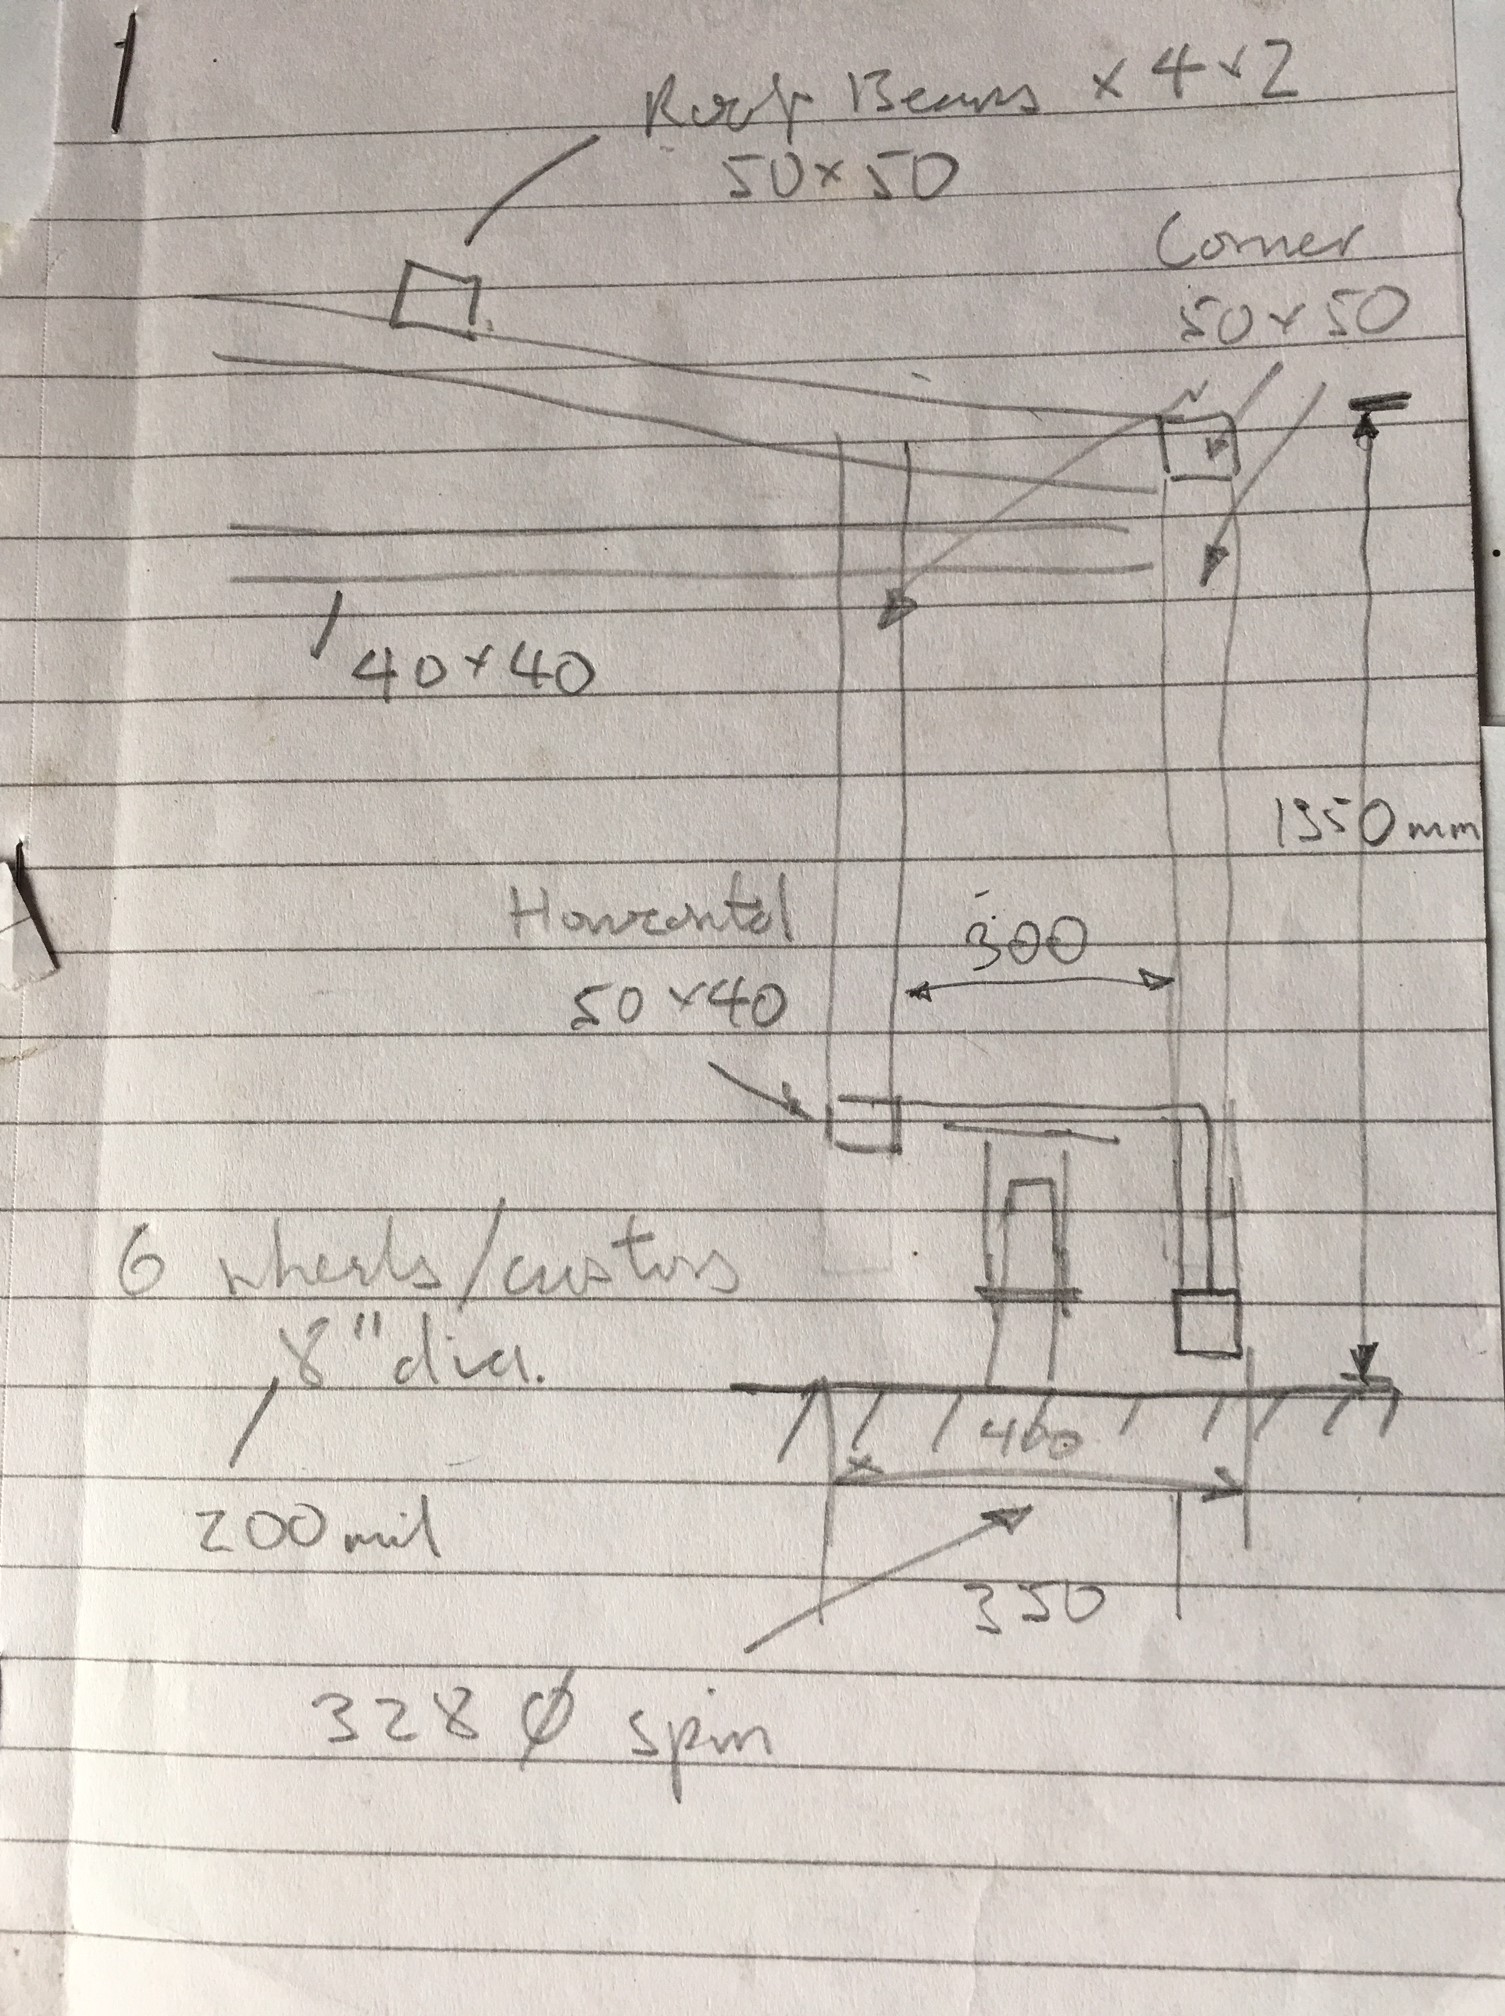 1
Roof Beams x 4 x 2
50 x 50
Corner
50 x 50
40 x 40
1950 mm
Horizontal
50 x 40
300
6 wheels/castors
8" dia.
400
200 mil
350
328 Ø spin